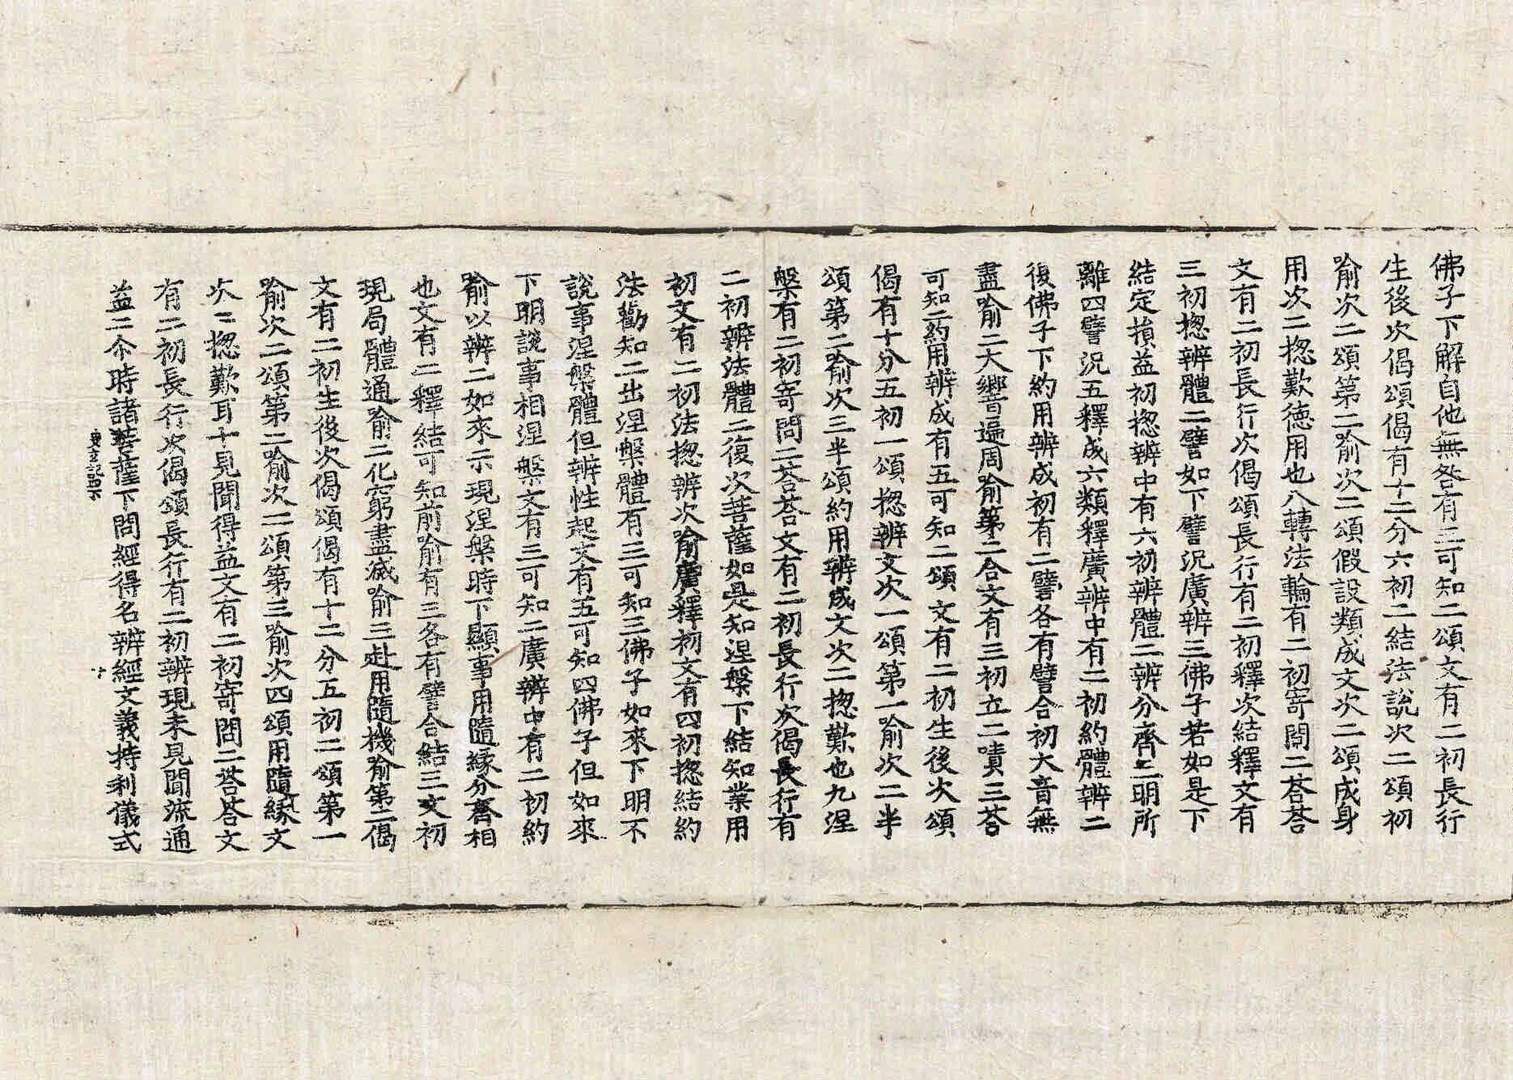 佛子下解自他無咎有二可知二頌文有二初長行
生後次偈頌偈有十二分六初二結法說次二頌初
喻次二頌第二喻次二頌假設類成文次二頌成身
用次二揔歎德用也八轉法輪有二初寄問二荅荅
文有二初長行次偈頌長行有二初釋次結釋文有
三初揔辨體二譬如下譬況廣辨三佛子若如是下
結定損益初揔辨中有六初辨體二辨分齊三明所
離四譬況五釋成六類釋廣辨中有二初約體辨二
後佛子下約用辨成初有二譬各有譬合初大音無
盡喻二大響音遍周喻第二合文有三初立二嘖三荅
可知二約用辨成有五可知二頌文有二初生後次頌
偈有十分五初一頌揔辨文次一頌第一喻次二半
頌第二喻次三半頌約用辨成文次二揔歎也九涅
槃有二初寄問二荅荅文有二初長行次偈長行有
二初辨法體二復次菩薩如是知涅槃下結知業用
初文有二初法揔辨次喻廣釋初文有四初揔結約
法勸知二出涅槃體有三可知三佛子如來下明不
說事涅槃體但辨性起文有五可知四佛子但如來
下明說事相涅槃文有三可知二廣辨中有二初約
喻以辨二如來示現涅槃時下顯事用隨緣分齊相
也文有二釋結可知前喻有三各有譬合結三文初
現局體通喻二化窮盡滅喻三赴用隨機喻第二偈
文有二初生後次偈頌偈有十二分五初二頌第一
喻次二頌第二喻次二頌第三喻次四頌用隨緣文
次二揔歎耳十見聞得益文有二初寄問二荅荅文
有二初長行次偈頌長行有二初辨現未見聞流通
益二尒時諸菩薩下問經得名辨經文義持利儀式